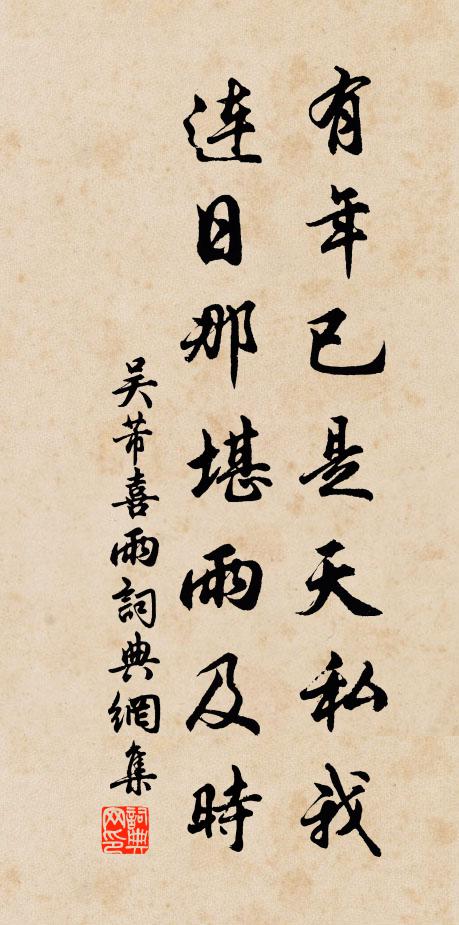 有年已是天私我
連日那堪雨及時
吴芾喜雨詞典網集
詞典网印